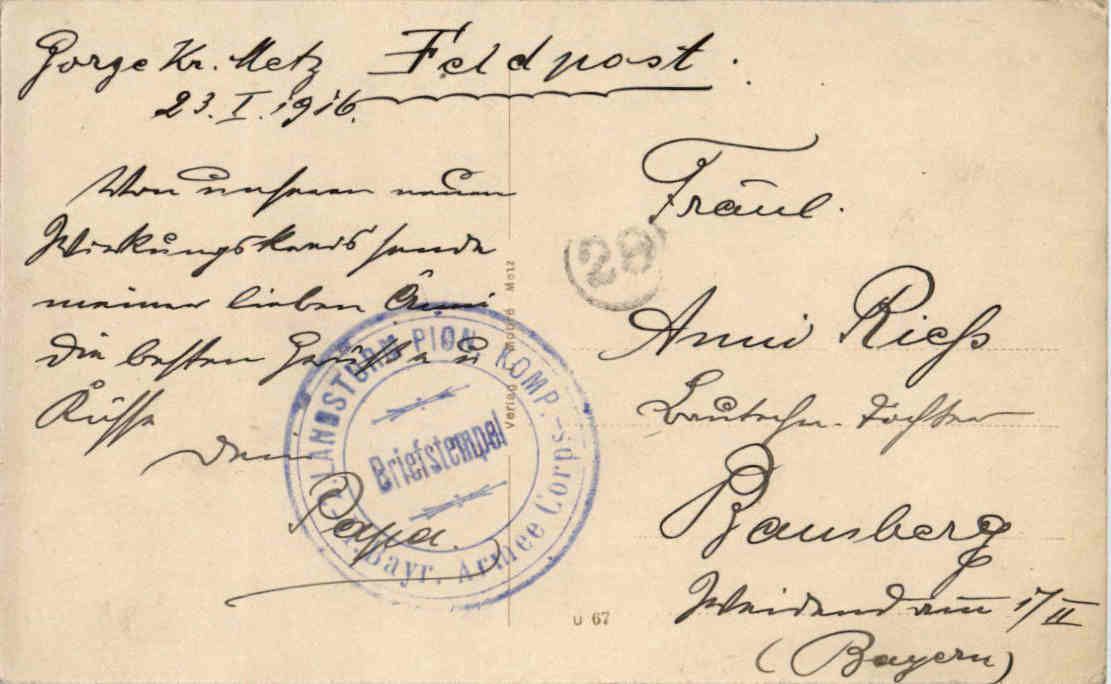 Gorze Kr. Metz
Feldpost.
23. I. 1916.
Von unserem neuen
Wirkungskreis sende
meiner lieben Anni
die besten Grüße u
Küsse
Dein
Papa.
Fräul.
Anni Rieß
tochter
Bamberg
Weidendamm 17/II
(Bayern)
29
LANDSTURM PION. KOMP.
Bayr. Armee Corps.
Briefstempel
Verlag Metz
U 67